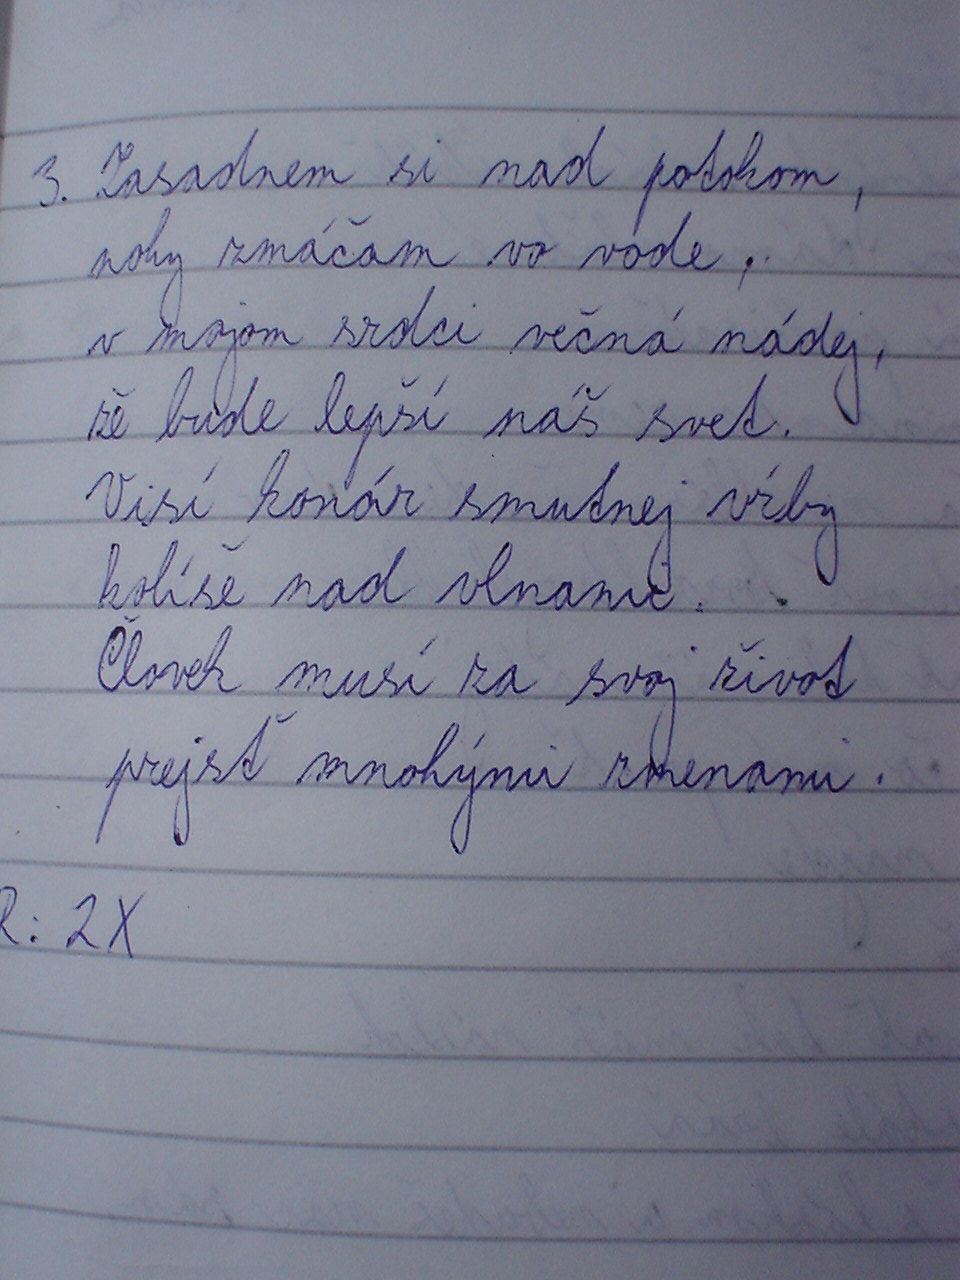 3. Zasadnem si nad potokom,
nohy zmáčam vo vode,
v mojom srdci večná nádej,
že bude lepší náš svet.
Visí konár smutnej vŕby
kolíše nad vlnami.
Človek musí za svoj život
prejsť mnohými zmenami.
R: 2X